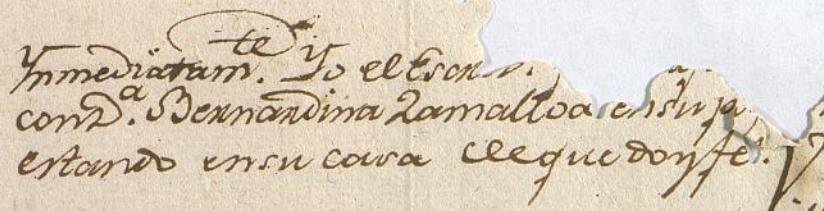 Ynmediatamte. Yo el Escri
con Da. Bernardina Zamalloa en su p
estando en su casa de que doy fe.